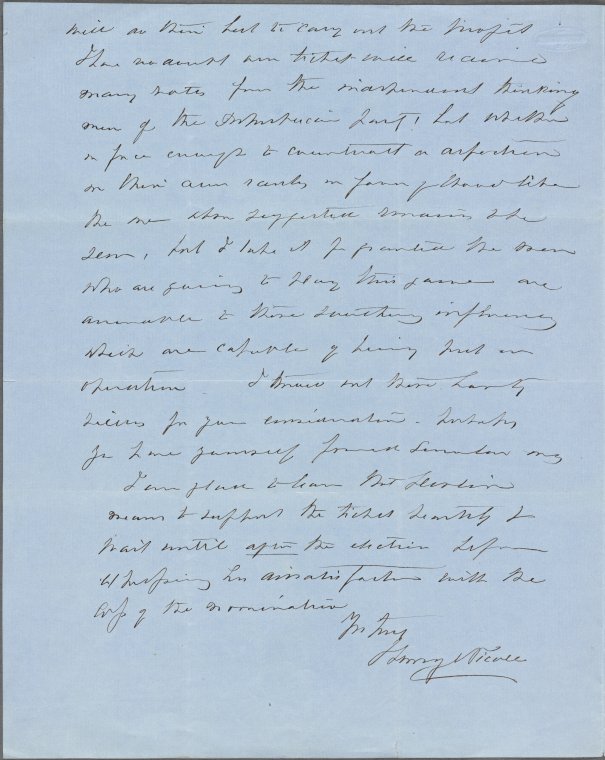 will do their best to carry out the project
I have no doubt our ticket will receive
many votes from the independent thinking
men of the Party, but whether
in force enough to counteract a defection
in their own ranks in favor of
the one above suggested remains to be
seen, but I take it for granted the men
who are going to play this game are
amenable to those soothing influences
which are capable of being put in
operation I throw out these hasty
ideas for your consideration. Probably
you have yourself formed similar ones
I am glad to learn that
means to support the ticket heartily &
wait until after the election before
expressing his dissatisfaction with the
of the nomination
Yrs truly
Henry Nicoll